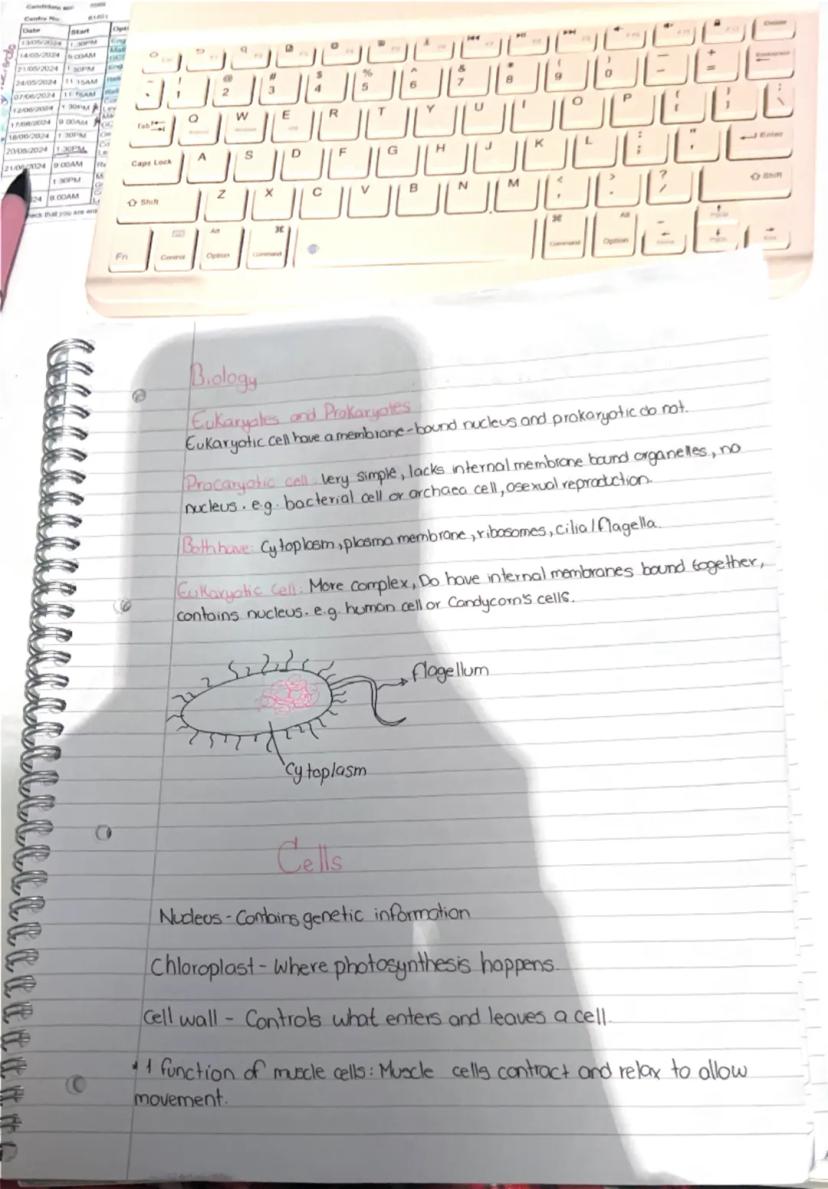 Candidate
Centre No.
Date Start
13/05/2024 1:30PM
14/05/2024 9:00AM
21/05/2024 1:30PM
24/05/2024 11:15AM
07/06/2024 11:15AM
12/06/2024 1:30PM
17/06/2024 9:00AM
18/06/2024 1:30PM
20/06/2024 1:30PM
21/06/2024 9:00AM
1:30PM
24 9:00AM
~ ` ! 1 @ 2 # 3 $ 4 % 5 ^ 6 & 7 * 8 ( 9 ) 0 _ - + =
Tab Q W E R T Y U I O P { [ } ] | \
Caps Lock A S D F G H J K L : ; " ' Enter
Shift Z X C V B N M < , > . ? / Shift
Fn Control Alt Option ⌘ Command ⌘ Command Alt Option
Biology
Eukaryotes and Prokaryotes
Eukaryotic cell have a membrane-bound nucleus and prokaryotic do not.
Procaryotic cell: Very simple, lacks internal membrane bound organelles, no
nucleus. e.g. bacterial cell or archaea cell, asexual reproduction.
Both have: Cytoplasm, plasma membrane, ribosomes, cilia/flagella.
Eukaryotic Cell: More complex, Do have internal membranes bound together,
contains nucleus. e.g. human cell or Candycorn's cells.
flagellum
Cytoplasm
Cells
Nucleus - Contains genetic information
Chloroplast - Where photosynthesis happens.
Cell wall - Controls what enters and leaves a cell.
1 function of muscle cells: Muscle cells contract and relax to allow
movement.